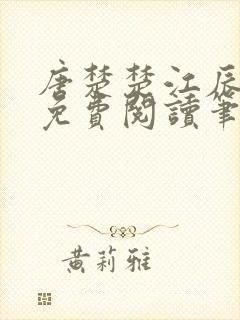 唐楚楚江辰
免費閱讀筆
黃莉雅